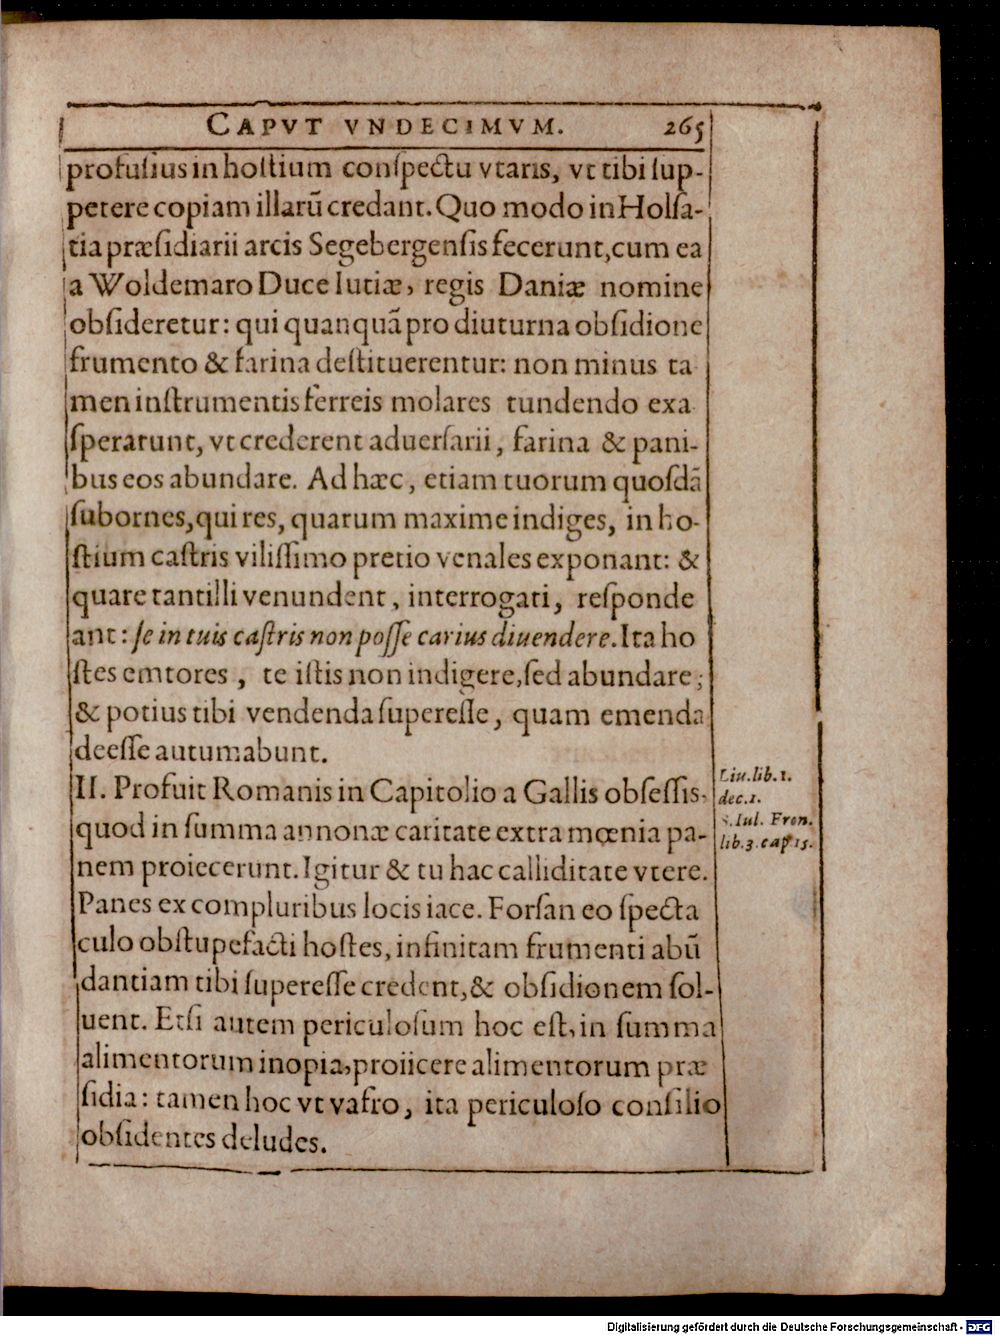 CAPVT VNDECIMVM. 265
profusius in hostium conspectu vtaris, vt tibi sup-
petere copiam illarũ credant. Quo modo in Holsa-
tia præsidiarii arcis Segebergensis fecerunt, cum ea
a Woldemaro Duce Iutiæ, regis Daniæ nomine
obsideretur: qui quanquã pro diuturna obsidione
frumento & farina destituerentur: non minus ta
men instrumentis ferreis molares tundendo exa
sperarunt, vt crederent aduersarii, farina & pani-
bus eos abundare. Ad hæc, etiam tuorum quosdã
subornes, qui res, quarum maxime indiges, in ho-
stium castris vilissimo pretio venales exponant: &
quare tantilli venundent, interrogati, responde
ant: se in tuis castris non posse carius diuendere. Ita ho
stes emtores, te istis non indigere, sed abundare;
& potius tibi vendenda superesse, quam emenda
deesse autumabunt.
II. Profuit Romanis in Capitolio a Gallis obsessis,
quod in summa annonæ caritate extra mœnia pa-
nem proiecerunt. Igitur & tu hac calliditate vtere.
Panes ex compluribus locis iace. Forsan eo specta
culo obstupefacti hostes, infinitam frumenti abũ
dantiam tibi superesse credent, & obsidionem sol-
uent. Etsi autem periculosum hoc est, in summa
alimentorum inopia, proiicere alimentorum præ
sidia: tamen hoc vt vafro, ita periculoso consilio
obsidentes deludes.
Liu. lib. 1.
dec. 1.
S. Iul. Fron.
lib. 3. cap 15.
Digitalisierung gefördert durch die Deutsche Forschungsgemeinschaft - DFG